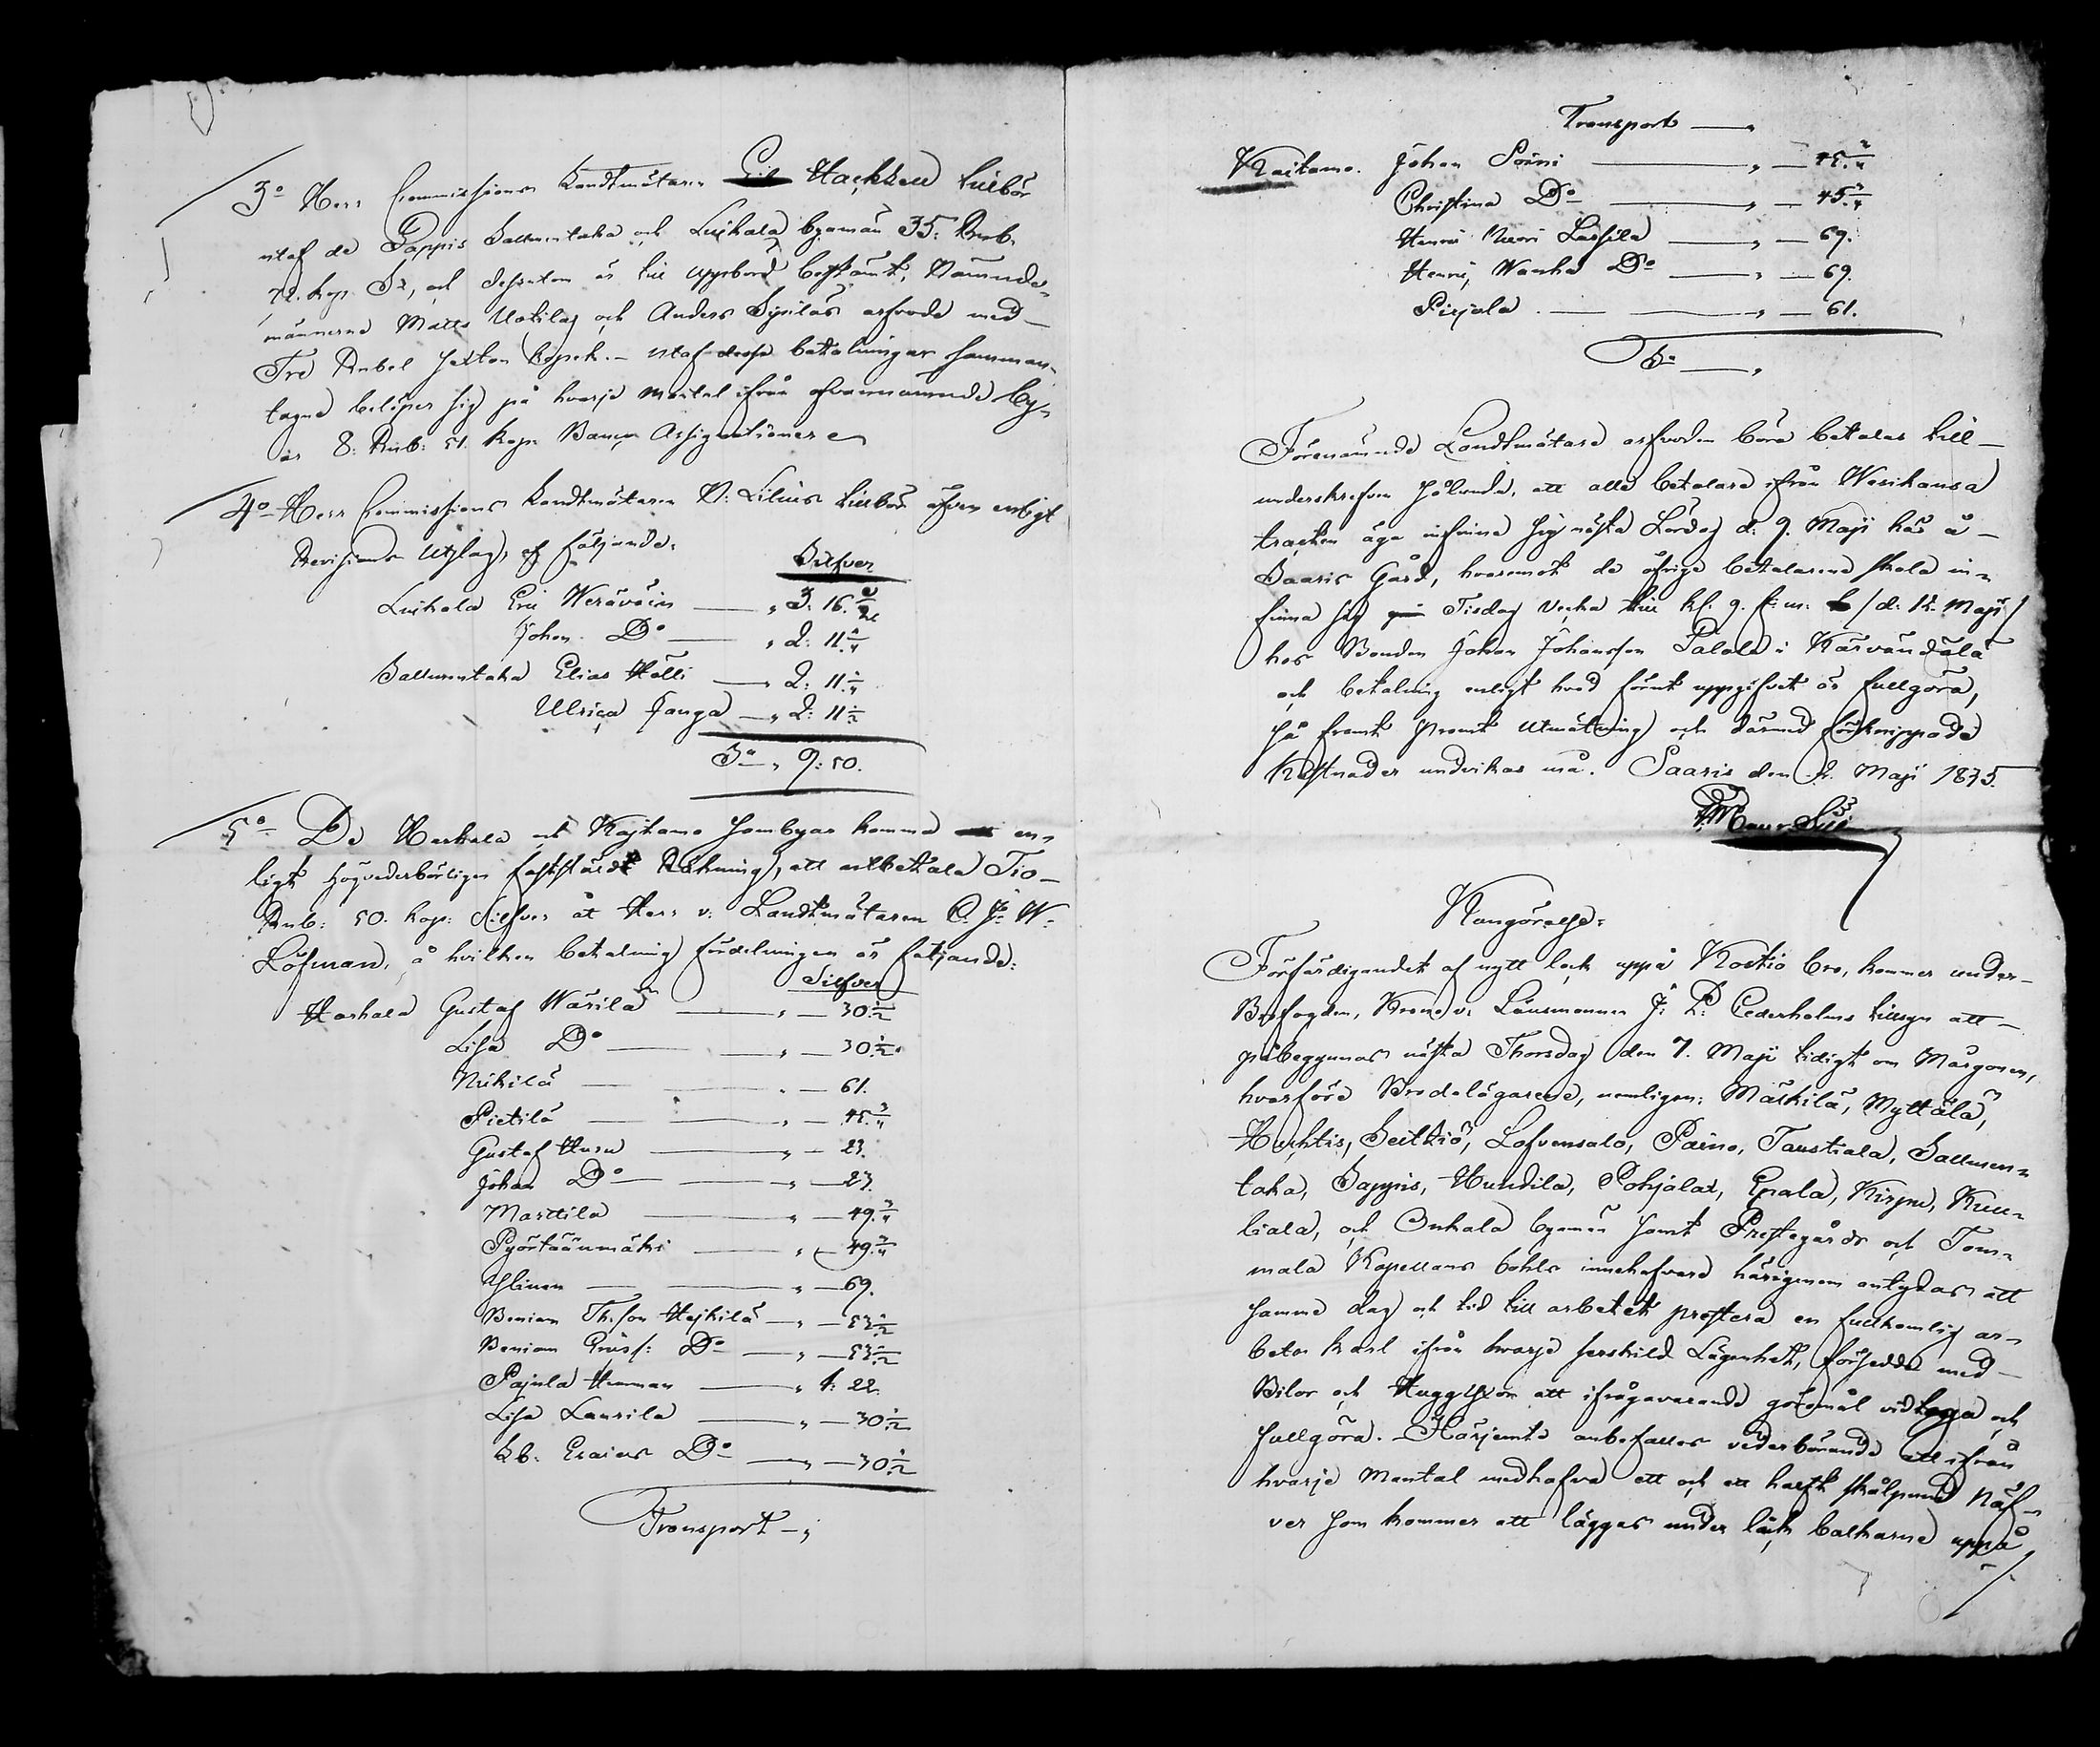 3o Herr Commissions Landtmätaren Hackzell tillbör
utaf de Sappis Sallmentaka och Luikala byamän 35. Rub.
72. kop. Sr, och dessutom är till uppbörd bestämt, Nämnde-
männerne Matts Uotilas och Anders Sipiläs arfvode med
Tre Rubel sexton kopek. — utaf dessa betalningar samman-
tagne belöper sig på hvarje mantal ifrån ofvannämnde by-
ar 8. Rub: 51. kop. Banco Assignationer
4o Herr Commissions Landtmätaren Lilius tillbör äfven enligt
Revisions Utslag, af följande.
Silfver
Luikala Eric Werävöin — „ 3: 16.
Johan Do — „ 2: 11
Sallmentaka Elias Hölli — „ 2: 11
Ulrica Janga — „ 2: 11 1/2
Sa „ 9: 50.
5o De Harhala och Kajtamo hembyar komma en-
ligt högvederbörligen fastställdt Räkning, att utbetala Tio
Rub: 50. kop: Silfver åt Herr v: Landtmätaren C. J. W.
Löfman, å hvilken betalning fördelningen är följande:
Silfver
Harhala Gustaf Wäsilä — „ — 30 1/2
Lisa Do — „ — 30 1/2
Nikilä — „ — 61.
Pietilä — „ — 45 3/4
Gustaf Huru — „ — 23.
Johan Do — „ — 23.
Marttila — „ — 49 3/4
Pyörtäänmäki — „ — 49 3/4
Ylinen — „ — 69.
Beniam Th.son Hejkilä — „ — 53 1/2
Beniam Do — „ — 53 1/2
Pajula Herman — „ 1: 22.
Lisa Laurila — „ — 30 1/2
Esaias Do — „ — 30 1/2
Transport — „
Transport — „
Kaitamo. Johan Sönni — „ — 45 3/4
Christina Do — „ — 45 3/4
Henric Nuori Lassila — „ — 69.
Henric Wanha Do — „ — 69.
Pirjola — „ — 61.
Sa — „
Förenämnde Landtmätare arfvoden böra betalas till
underskrefven sålunda, att alla betalare ifrån Wesikansa
tracten äga infinna sig nästa Lördag d. 9. Maji här å
Saaris Gård, hvaremot de öfrige betalarene skola in-
finna sig Tisdag Vecka till kl: 9. f: m: /d: 12. Maji/
hos Bonden Johan Johansson Palola i Kärvändälä
och betalning enligt hvad förut uppgifvet är fullgöra,
så framt promt utmätning och därmed förknippade
Kostnader undvikas må. Saaris den 2. Maji 1835.
Kungörelse:
Förfärdigandet af nytt lock uppå Kostio bro, kommer under
Brofogden, Krono v: Länsmannen J: L: Cederholms tillsyn att
påbegynnas nästa Thorsdag den 7. Maji tidigt om Morgonen,
hvarföre Brodelägarene, nemligen: Märkilä, Myttälä,
Huhtis, Seittiö, Lofvensalo, Paino, Taustiala, Sallmen-
taka, Sappis, Hundila, Pohjalax, Epala, Kirpu, Kuu-
liala, och Onkala byamän samt Prestegårds och Tom-
mala Kapellans bohls innehafvare härigenom antydas att
samma dag och tid till arbetet prestera en fullkomlig ar-
betes karl ifrån hvarje särskild Lägenhet, försedde med
Bilor och Huggyxor att ifrågavarande göromål vidtaga och
fullgöra. Härjemte anbefalles vederbörande att ifrån
hvarje Mantal medhafva ett och ett halft skålpund Näf-
ver som kommer att läggas under lock balkarne uppå